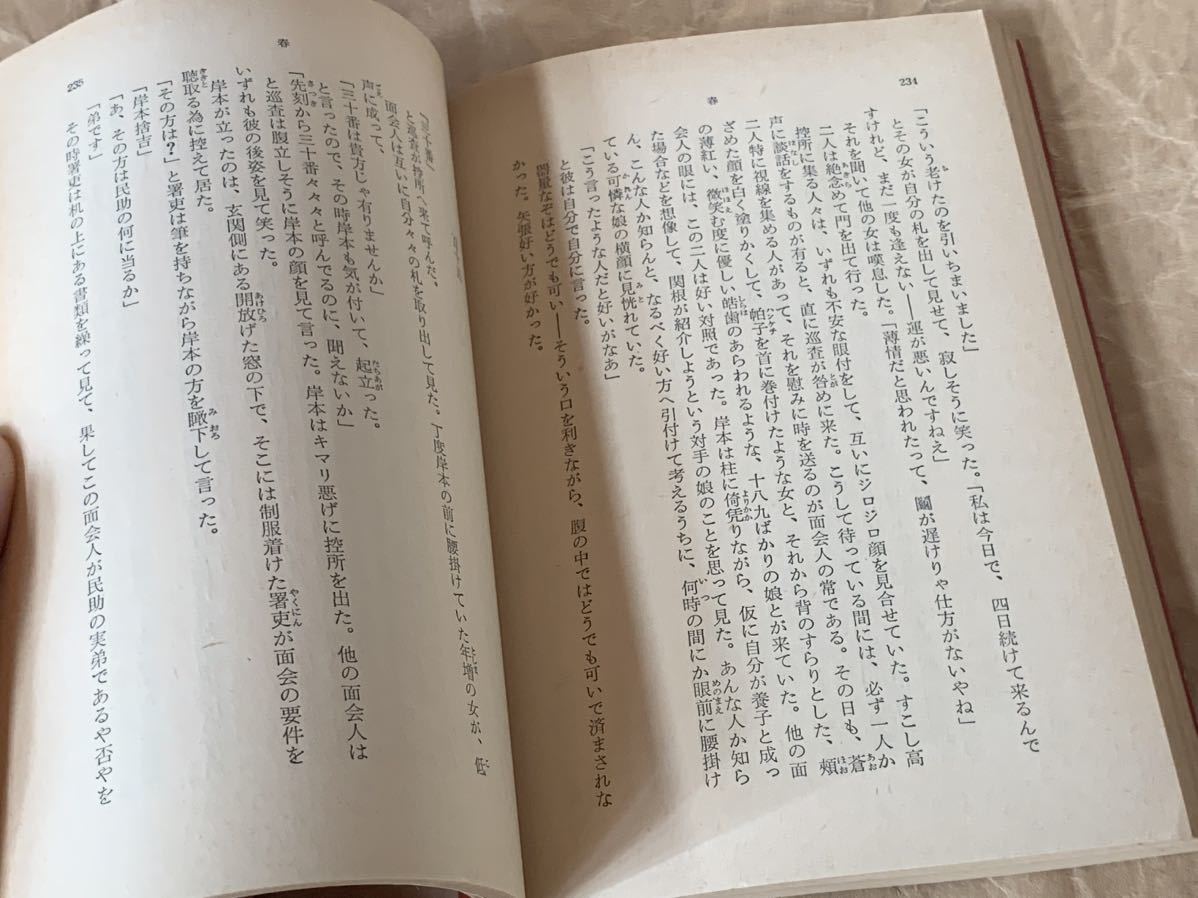 234
春
「こういう老けたのを引いちまいました」
とその女が自分の札を出して見せて、寂しそうに笑った。「私は今日で、四日続けて来るんで
すけれど、まだ一度も逢えない——運が悪いんですねえ」
それを聞いて他の女は嘆息した。「薄情だと思われたって、鬮が遅けりや仕方がないやね」
二人は絶念めて門を出て行った。
控所に集る人々は、いずれも不安な眼付をして、互いにジロジロ顔を見合せていた。すこし高
声に談話をするものが有ると、直に巡査が咎めに来た。こうして待っている間には、必ず一人か
二人特に視線を集める人があって、それを慰みに時を送るのが面会人の常である。その日も、蒼
ざめた顔を白く塗りかくして、帕子を首に巻付けたような女と、それから背のすらりとした、頰
の薄紅い、微笑む度に優しい皓歯のあらわれるような、十八九ばかりの娘とが来ていた。他の面
会人の眼には、この二人は好い対照であった。岸本は柱に倚凭りながら、仮に自分が養子と成っ
た場合などを想像して、関根が紹介しようという対手の娘のことを思って見た。あんな人か知ら
ん、こんな人か知らんと、なるべく好い方へ引付けて考えるうちに、何時の間にか眼前に腰掛け
ている可憐な娘の横顔に見恍れていた。
「こう言ったような人だと好いがなあ」
と彼は自分で自分に言った。
闇量なぞはどうでも可い——そういう口を利ぎながら、腹の中ではどうでも可いで済まされな
かった。矢張好い方が好かった。
春
235
「三十番」
と巡査が控所へ来て呼んだ。
面会人は互いに自分々々の札を取り出して見た。丁度岸本の前に腰掛けていた年増の女が、低
声に成って、
「三十番は貴方じゃ有りませんか」
と言ったので、その時岸本も気が付いて、起立った。
「先刻から三十番々々と呼んでるのに、聞えないか」
と巡査は腹立しそうに岸本の顔を見て言った。岸本はキマリ悪げに控所を出た。他の面会人は
いずれも彼の後姿を見て笑った。
岸本が立ったのは、玄関側にある開放げた窓の下で、そこには制服着けた署吏が面会の要件を
聴取る為に控えて居た。
「その方は?」と署吏は筆を持ちながら岸本の方を瞰下して言った。
「岸本捨吉」
「あ、その方は民助の何に当るか」
「弟です」
その時署吏は札の上にある書類を繰って見て、果してこの面会人が民助の実弟であるや否やを